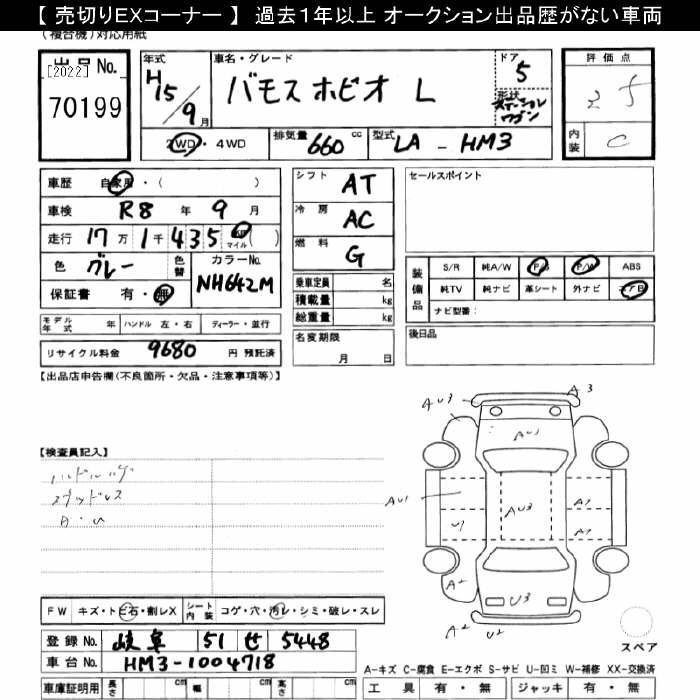 【 売切りEXコーナー 】 過去1年以上 オークション出品歴がない車両
(複合機)対応用紙
出品 No.
[2022]
70199
年式
H15/9月
車名・グレード
バモスホビオ L
ドア
5
形状
ステーションワゴン
評価点
内装
C
2WD・4WD
排気量 660 cc
型式 LA - HM3
車歴 自家用・( )
車検 R8 年 9 月
走行 17万1千435 マイル( )
色 グレー
色替
カラーNo.
NH642M
保証書 有・無
シフト AT
冷房 AC
燃料 G
乗車定員 名
積載量 kg
総重量 kg
名変期限
月 日
セールスポイント
装備品
S/R 純A/W P/S P/W ABS
純TV 純ナビ 革シート 外ナビ エアB
ナビ型番:
後日品
モデル年式 年 ハンドル 左・右 ディーラー・並行
リサイクル料金 9680 円 預託済
【出品店申告欄(不良箇所・欠品・注意事項等)】
【検査員記入】
A・U
AU3
A3
AU1
AU3
U3
A2
U2
FW キズ・トビ石・割レX
シート内装 コゲ・穴・汚レ・シミ・破レ・スレ
登録 No. 岐阜 51 せ 5448
車台 No. HM3-1004718
車庫証明用 長さ cm 幅 cm 高さ cm
スペア
A-キズ C-腐食 E-エクボ S-サビ U-凹ミ W-補修 XX-交換済
工具 有・無 ジャッキ 有・無